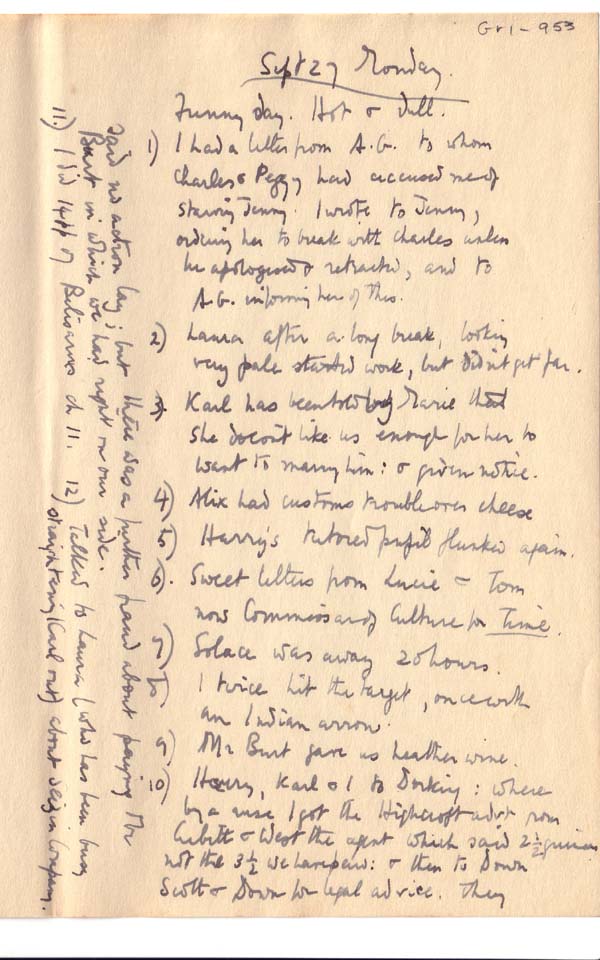 Gr1-953
Sept 27 Monday.
Funny day. Hot & dull.
1) I had a letter from A.G. to whom
Charles & Peggy had accused me of
starving Jenny. I wrote to Jenny,
ordering her to break with Charles unless
he apologised & retracted, and to
A.G. informing her of this.
2) Laura after a long break, looking
very pale started work, but didn't get far.
3) Karl has been told by Marie that
she doesn't like us enough for her to
want to marry him: & given notice.
4) Alix had customs trouble over cheese
5) Harry's tutored pupil flunked again.
6) Sweet letters from Lucie = Tom
now Commissar of Culture for Time.
7) Solace was away 20 hours.
8) I twice hit the target, once with
an Indian arrow.
9) Mr Burt gave us heather wine.
10) Harry, Karl & I to Dorking: where
by a ruse I got the Highcroft advt from
Cubitt & West the agent which said 2½ guineas
not the 3½ we have paid: & then to Down
Scott & Down for legal advice. They
said no action lay; but there was a further fraud about paying Mr
Burt in which we had right on our side.
11) I did 14 pp of Belisarius ch 11. 12) Talked to Laura (who has been busy
straightening Karl out) about being in company.